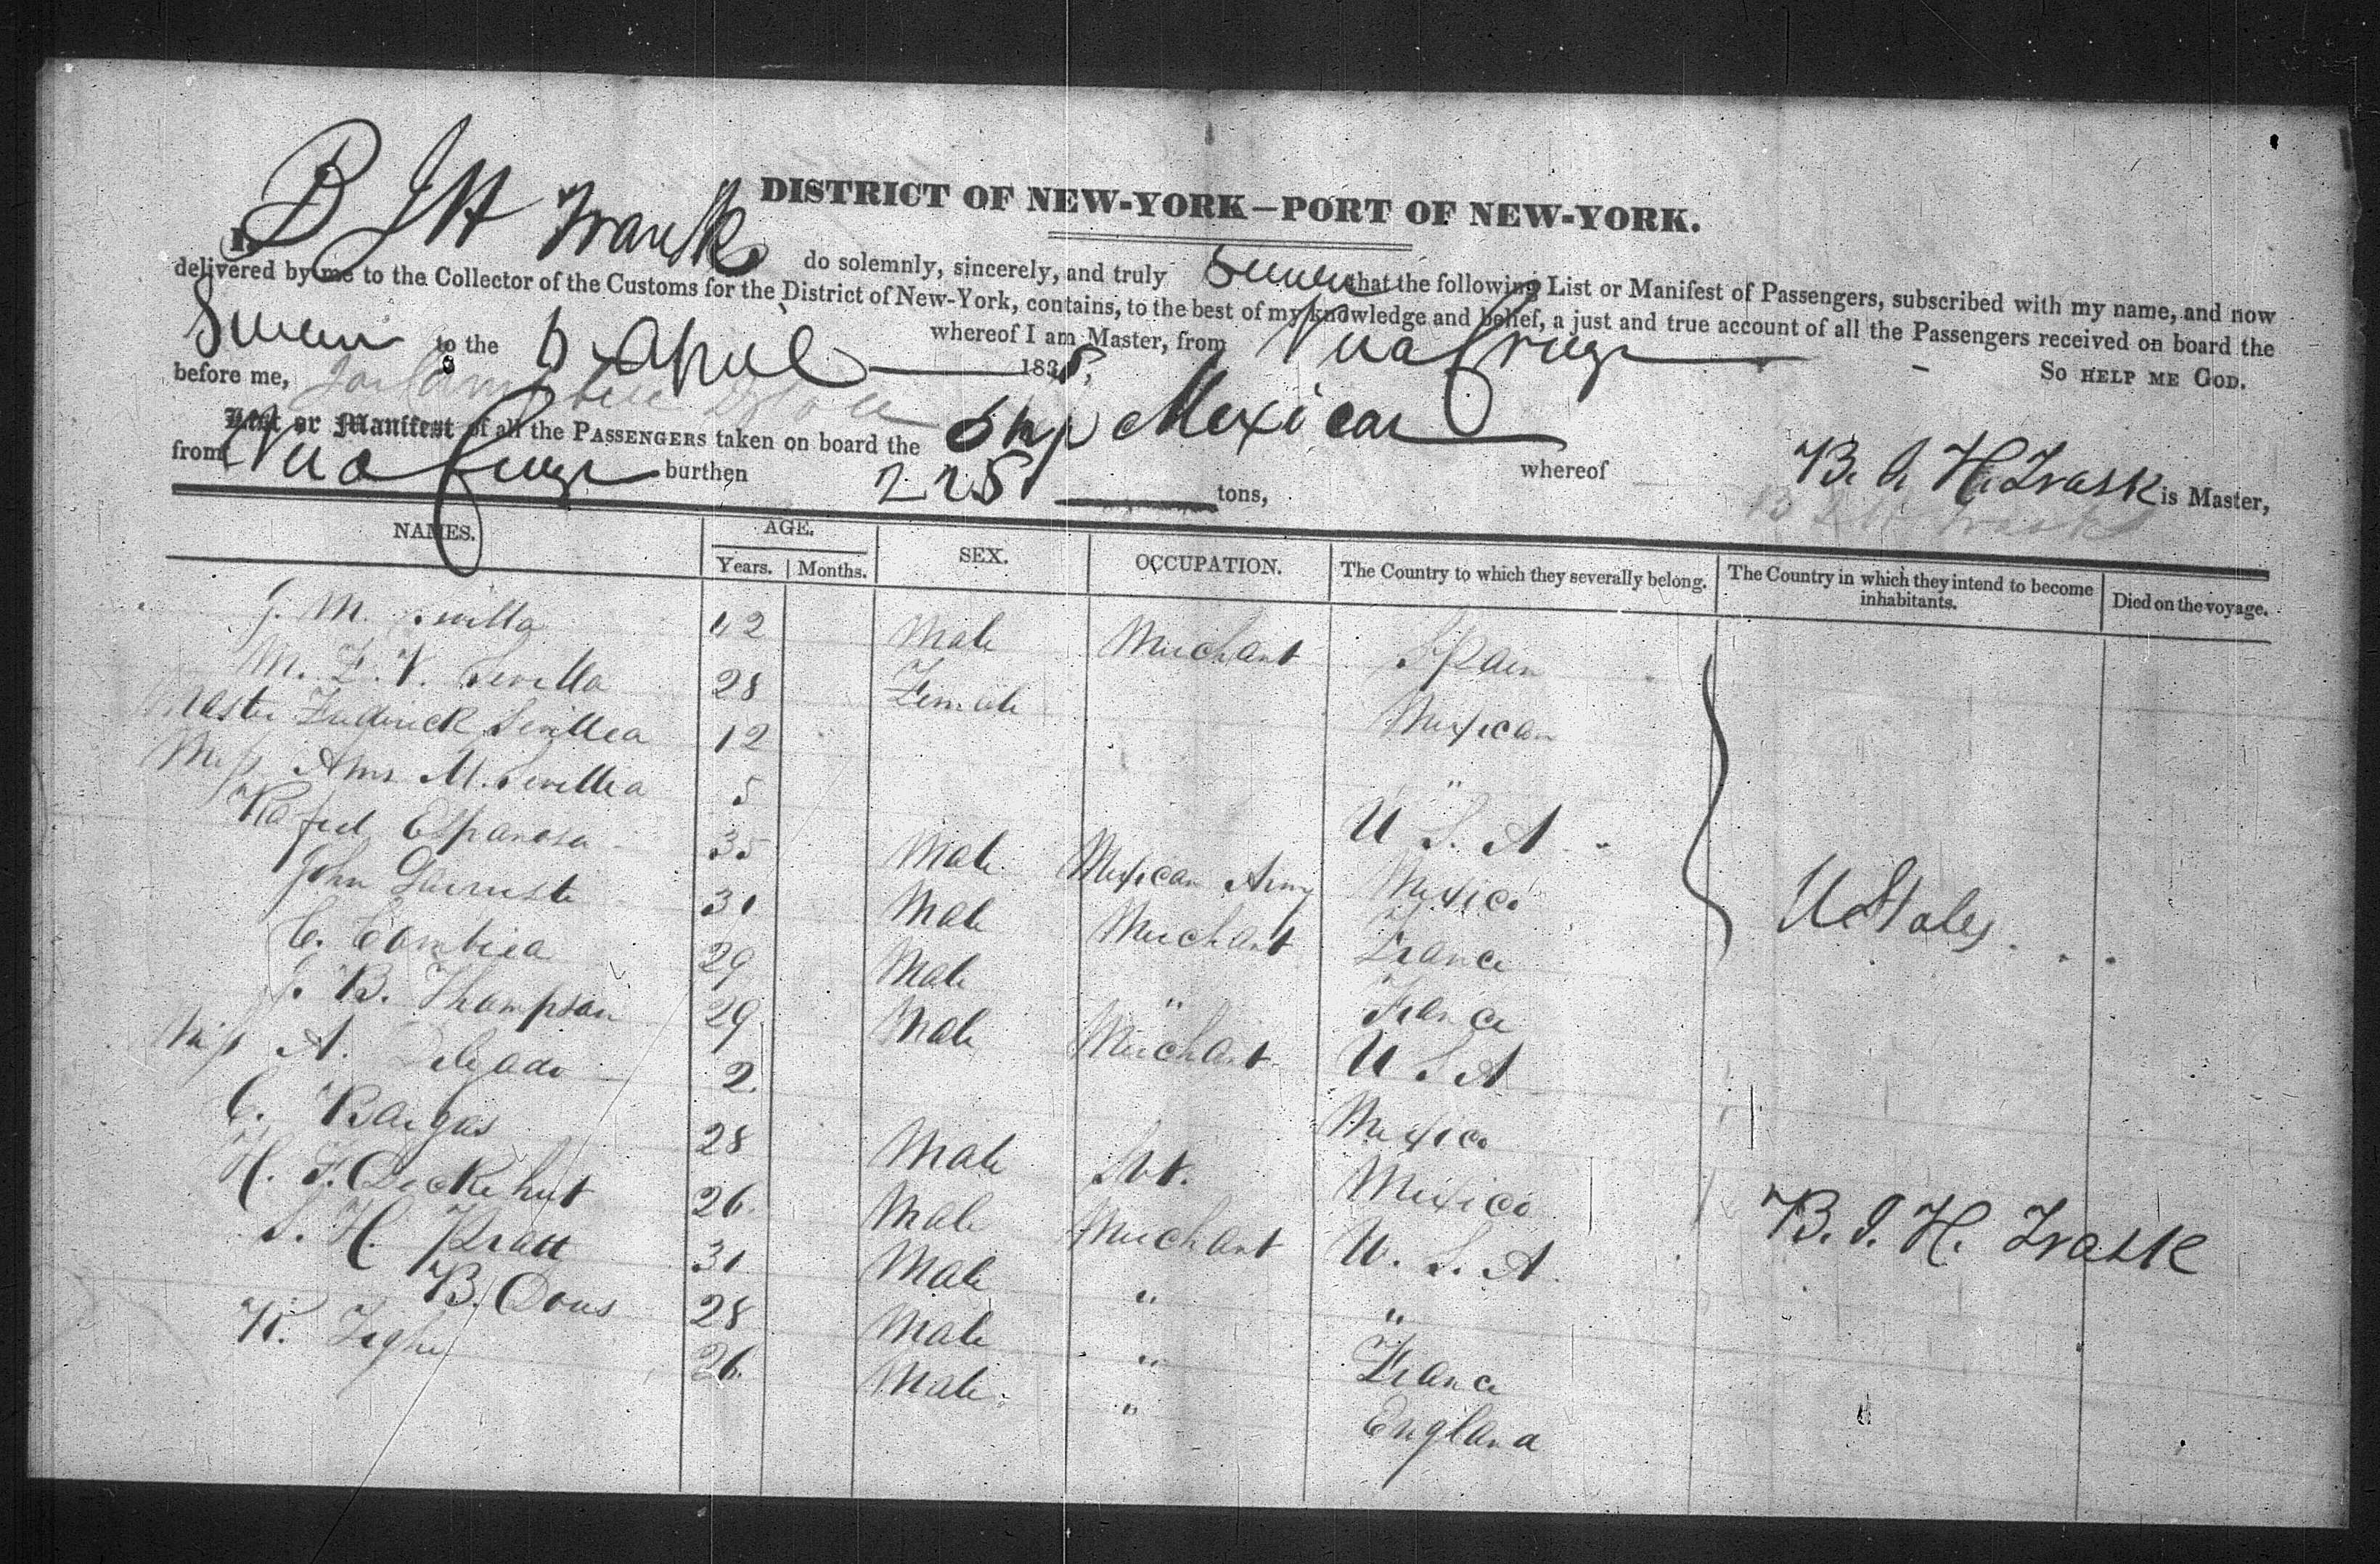 DISTRICT OF NEW-YORK—PORT OF NEW-YORK.
I, B I H Trask do solemnly, sincerely, and truly Swear that the following List or Manifest of Passengers, subscribed with my name, and now
delivered by me to the Collector of the Customs for the District of New-York, contains, to the best of my knowledge and belief, a just and true account of all the Passengers received on board the
whereof I am Master, from Vera Cruz
Sworn to the 6 April 1838, So HELP ME GOD.
before me,
List or Manifest of all the PASSENGERS taken on board the Ship Mexican whereof B. I. H. Trask is Master,
from Vera Cruz burthen 225 tons,
B I H Trask
NAMES. AGE. SEX. OCCUPATION. The Country to which they severally belong. The Country in which they intend to become inhabitants. Died on the voyage.
Years. Months.
J. M. Sevilla 42 Male Merchant Spain
M. L. V. Sevilla 28 Female Mexican
Master Frederick Sevillea 12 "
Miss Ama M. Sevillea 5 U S. A
Rafael Espanosa 35 Male Mexican Army Mexico
John 31 Male Merchant France
C. Cambiea 29 Male " France
J. B. Thompson 29 Male Merchant U S A
Miss A. Delgado 2 Mexico
C. Bargas 28 Male Svt. Mexico
H. F. Deckehut 26 Male Merchant U. S. A
S. H. Pratt 31 Male " "
B. Dous 28 Male " France
K. Tighe 26 Male " England
U States
B. I. H. Trask